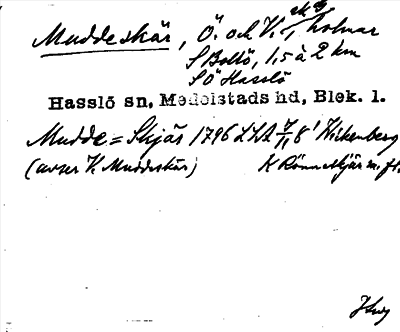 Muddeskär, Ö. och V., holmar
S Bollö, 1,5 à 2 km
S Ö Hasslö
Hasslö sn, Medelstads hd, Blek. l.
Mudde=Skjär 1796 LSA 7/11 8¹ Wickenberg
(avser V. Muddeskär) K Rönneskjär m. fl.